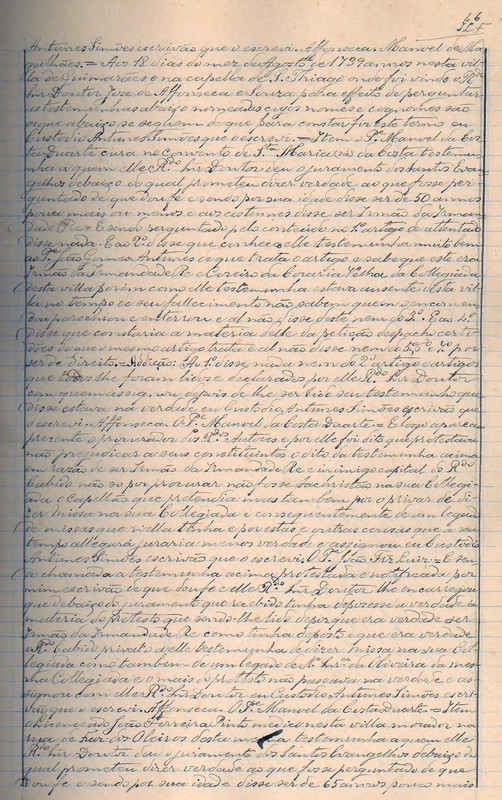 Antunes Simões escrivão que o escrevi. Affonseca. Manoel de Ma
galhães. = Aos 18 dias do mez de Agosto de 1739 annos nesta vil
la de Guimarães e na capella de S. Thiago onde foi vindo o Rdo
Snr. Doutor Jose de Affonseca e Souza para effeito de perguntar
as testemunhas abaixo nomeadas cujos nomes e cognomes são
os que abaixo se seguem de que para constar fiz este termo eu
Custodio Antunes Simões que o escrevi. = Item o Pe Manoel da Cos
ta Duarte cura no Convento de Sta Marinha da Costa testemu
nha a quem elle Rdo Snr. Doutor deu o juramento dos Santos Evan
gelhos debaixo do qual prometeu dizer verdade ao que fosse per
guntado de que dou fe e sendo por sua idade disse ser de 50 annos
pouco mais ou menos e aos costumes disse ser Irmão da Irman
dade Re E sendo perguntado pelo conteudo no 1º artigo de attentado
disse nada. E ao 2º disse que conhece elle testemunha muito bem
ao Pe João Gomes Antunes de que trata o artigo e sabe que este era
Irmão da Irmandade Re e Coreiro da Coraria Velha da Collegiada
desta villa porém como elle testemunha estava ausente desta vil
la no tempo do seu fallecimento não sabem quem o encomen
dou poz o nem o enterrou e al não disse deste nem do 3º E ao 4º
Disse que constaria a materia delle da petição despacho certi
dões do que o mesmo artigo trata e al não disse nem do 5º e 6º por
ser de Direito. = Addição: Ao 1º disse nada nem do 2º artigo e artigos
que todos lhe foram lidos e declarados por elle Rdo Snr. Doutor
com quem assignou depois de lhe ser lido seu testemunho que
disse estava na verdade eu Custodio Antunes Simões escrivão que
o escrevi. Affonseca. O Pe Manoel da Costa Duarte = E logo appareceu
presente o procurador dos Rdos Autores e por elle foi dito que protestava
não prejudicar a seus constituintes o dito da testemunha acima
em razão de ser Irmão da Irmandade Re e inimigo capital do Rdo
Cabido não só por procurar não fosse Sachristão na sua Collegi
ada o Capellão que pretendia mas tambem por o privar de di
zer missa na sua Collegiada e consequentemente de um legado
de missas que n'ella tinha e por estas e outras causas que a seu
tempo allegará juraria menos verdade e assignou eu Custodio
Antunes Simões escrivão que o escrevi. O Pe João Fiz Luiz = E sen
do chamada a testemunha acima protestada e notificada por
mim escrivão de que dou fe e elle Rdo Snr. Doutor lhe encarregou
que debaixo do juramento que recebido tinha depozesse a verdade da
materia do protesto que sendo-lhe lido depoz que era verdade ser
Irmão da Irmandade Re como tinha deposto e que era verdade
o Rdo Cabido privalo a elle testemunha de dizer missa na sua Col
legiada como tambem de um legado de N. Snra da Oliveira da mes
ma Collegiada e o mais protesto não passava na verdade e as
signou com elle Rdo Snr. Doutor eu Custodio Antunes Simões escri
vão que o escrevi. Affonseca. O Pe Manoel da Costa Duarte = Item
o Licenceado João Ferreira Pinto medico nesta villa morador na
rua de Traz dos Oleiros desta mesma testemunha a quem elle
Rdo Snr. Doutor deu o juramento dos Santos Evangelhos debaixo do
qual prometeu dizer verdade ao que fosse perguntado de que
dou fe e sendo por sua idade disse ser de 65 annos pouco mais